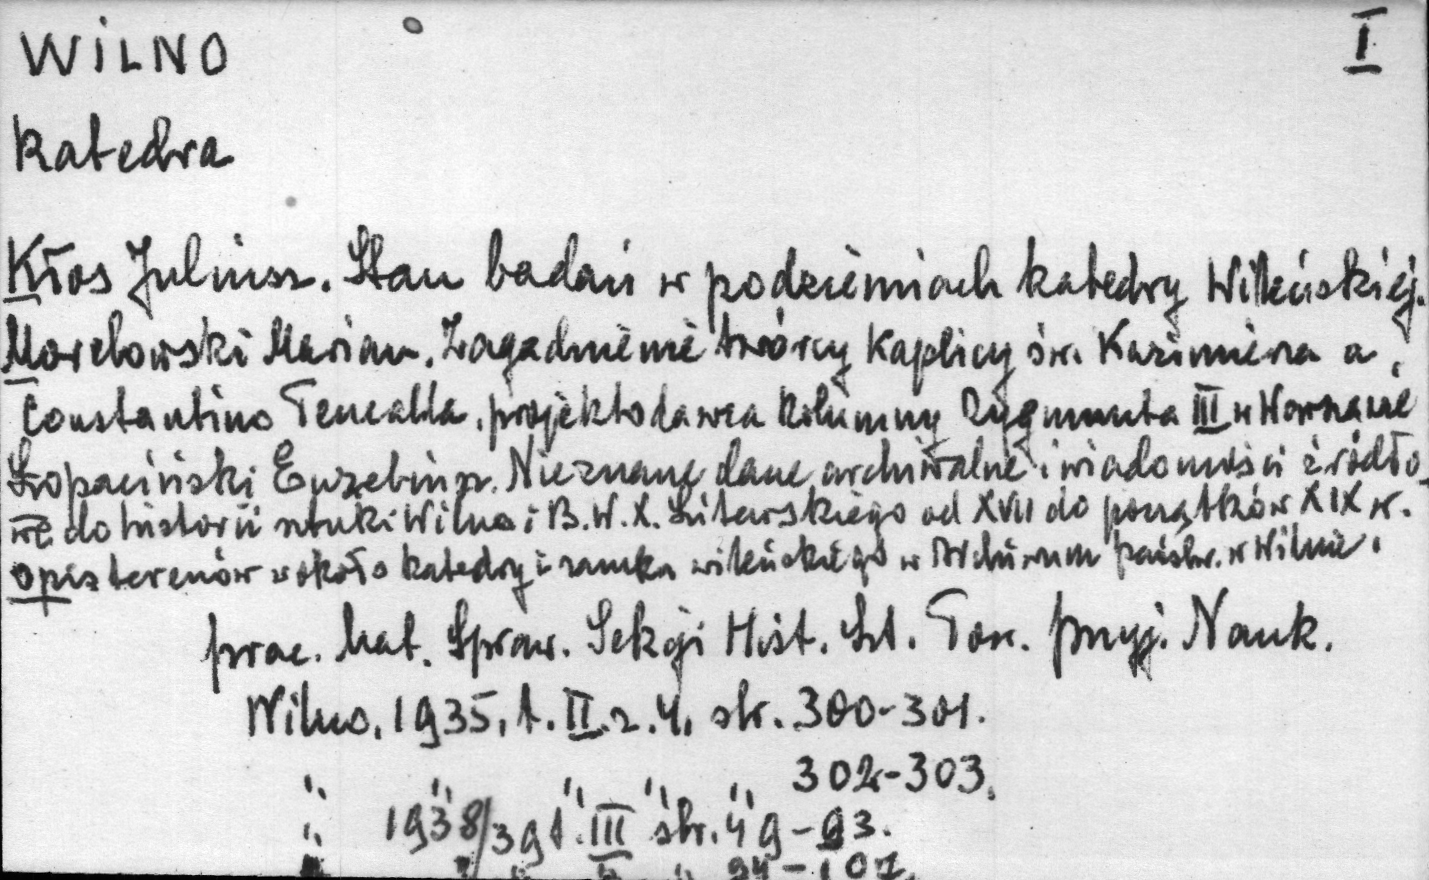 WILNO
I
Katedra
Kłos Juliusz. Stan badań w podziemiach katedry Wileńskiej.
Morelowski Marian. Zagadnienie twórcy Kaplicy św. Kazimierza a
Constantino Tencalla, projektodawca kolumny Zygmunta III w Warszawie
Łopaciński Euzebiusz. Nieznane dane archiwalne i wiadomości źródło-
we do historii sztuki Wilna i B. W. X. Litewskiego od XVII do początków XIX w.
opis terenów wokoło katedry i zamku wileńskiego w Archiwum państw. w Wilnie.
prac. Mat. Spraw. Sekcji Hist. Szt. Tow. przyj. Nauk.
Wilno, 1935, t. II. z. 4, str. 300-301.
" " " " " 302-303.
" 1938/39 t. III str. 49-93.
" " " " " 94-107.